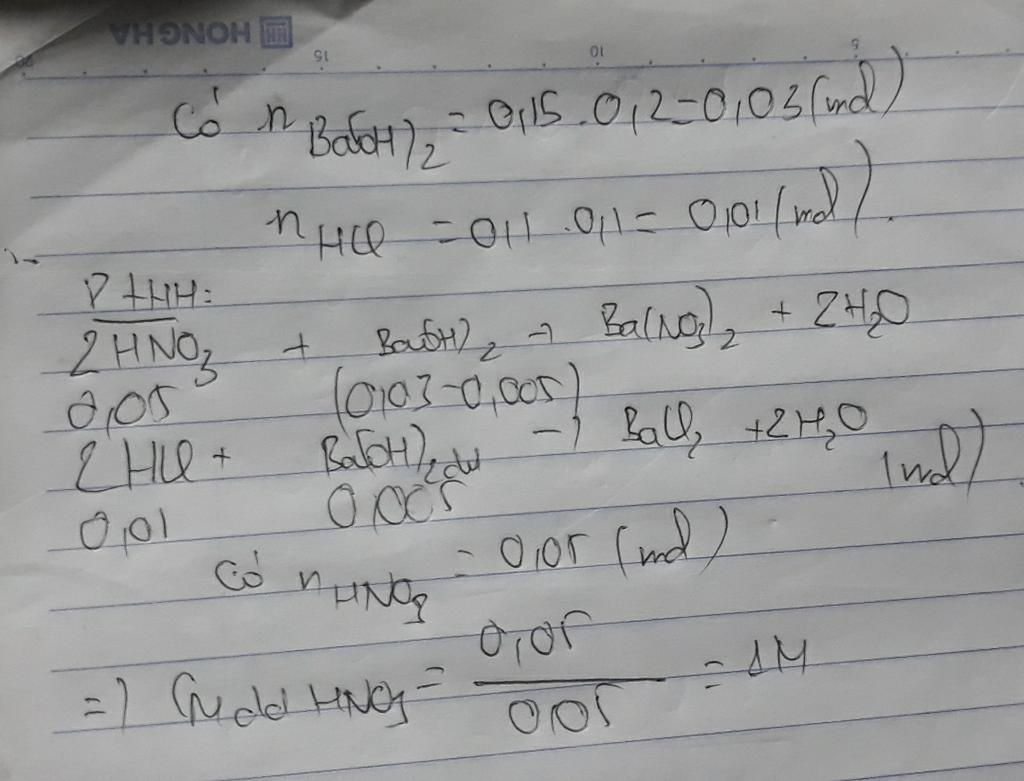 HONG HA
20 15 10 5
Có n Ba(OH)2 = 0,15 . 0,2 = 0,03 (mol)
n HCl = 0,1 . 0,1 = 0,01 (mol).
PTHH:
2HNO3 + Ba(OH)2 → Ba(NO3)2 + 2H2O
0,05 (0,03-0,005)
2HCl + Ba(OH)2 dư → BaCl2 + 2H2O
0,01 0,005 (mol)
Có n HNO3 = 0,05 (mol)
=) CM dd HNO3 = 0,05 / 0,05 = 1M